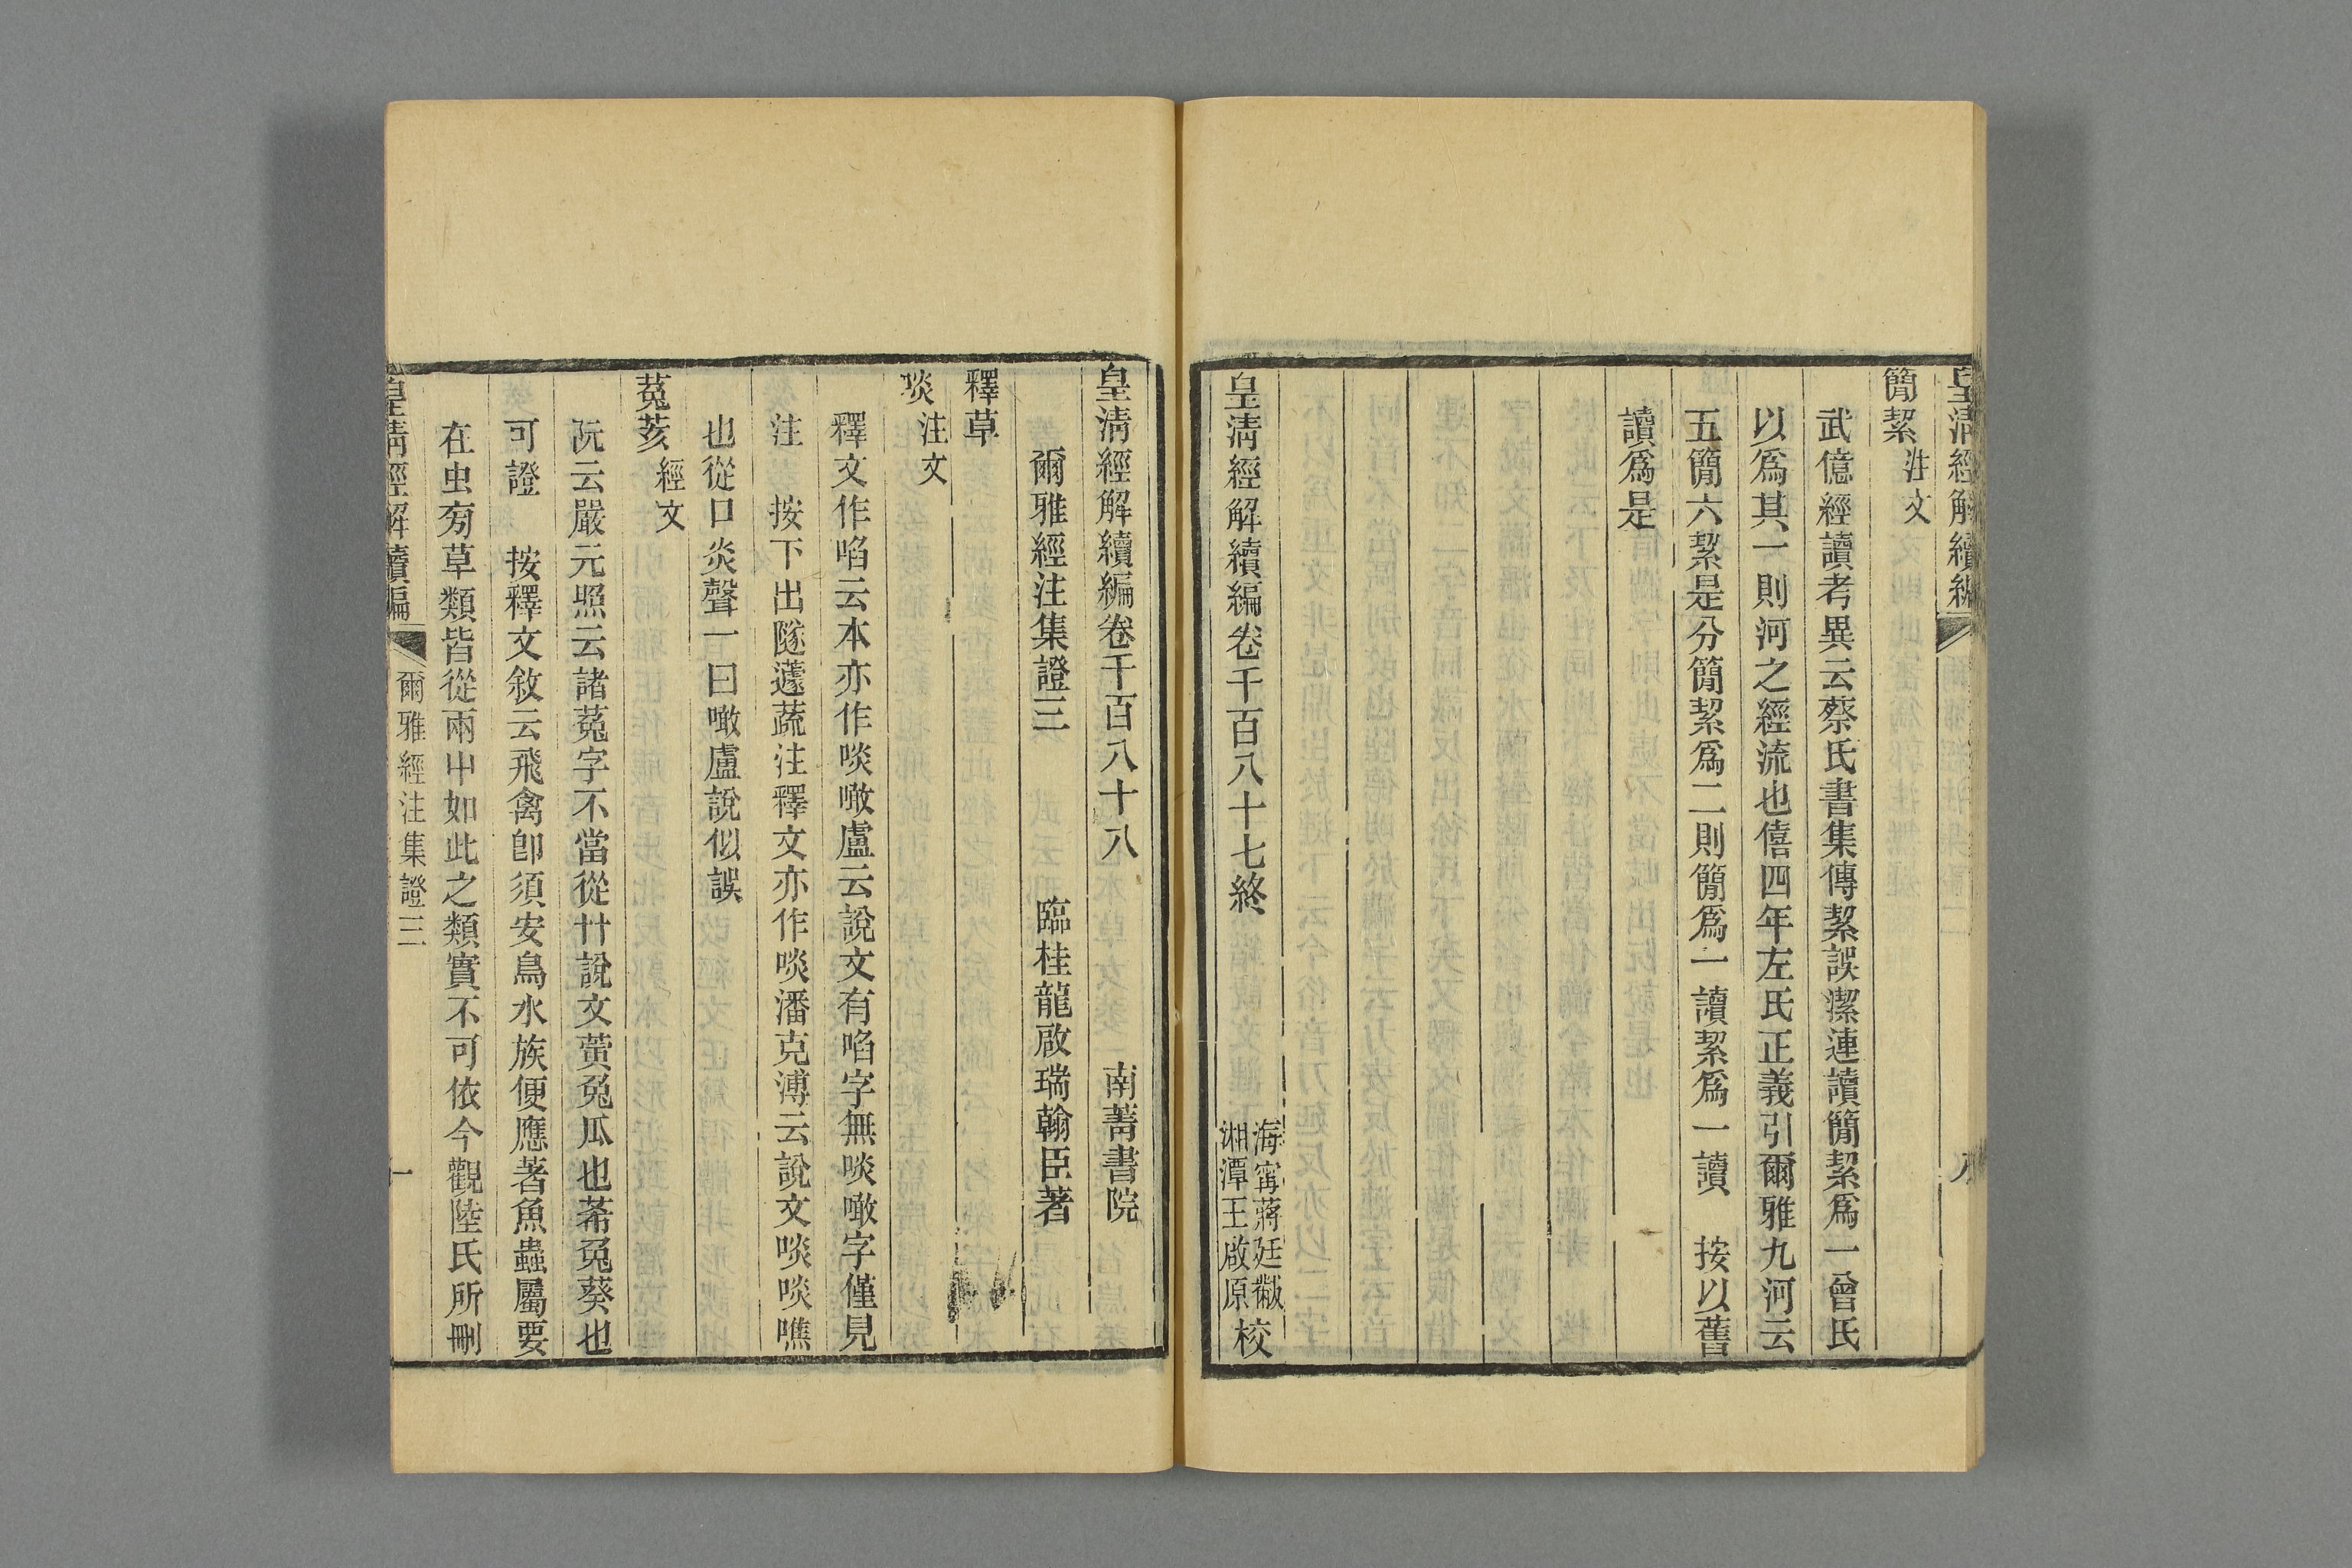 皇清經解續編
八
簡絜注文
武億經讀考異云蔡氏書集傳絜誤潔連讀簡絜爲一曾氏
以爲其一則河之經流也僖四年左氏正義引爾雅九河云
五簡六絜是分簡絜爲二則簡爲一讀絜爲一讀　按以舊
讀爲是
皇清經解續編卷千百八十七終
海寧蔣廷黻
湘潭王啟原校
皇清經解續編卷千百八十八　南菁書院
爾雅經注集證三　臨桂龍啟瑞翰臣著
釋草
啖注文
釋文作啗云本亦作啖噉盧云說文有啗字無啖噉字僅見
注　按下出隧蘧蔬注釋文亦作啖潘克溥云說文啖啖噍
也從口炎聲一曰噉盧說似誤
菟荄經文
阮云嚴元照云諸菟字不當從艸說文黃兔瓜也莃兔葵也
可證　按釋文敘云飛禽卽須安鳥水族便應著魚蟲屬要
在虫旁草類皆從兩屮如此之類實不可依今觀陸氏所刪
皇清經解續編
爾雅經注集證三
一